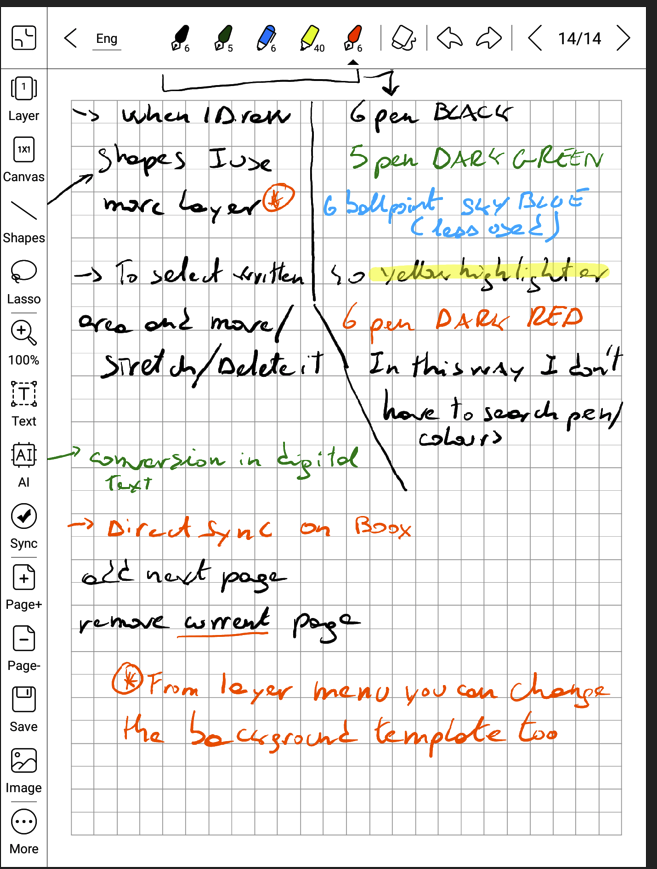 Eng
6
5
6
40
6
14/14
1
Layer
1X1
Canvas
Shapes
Lasso
100%
T
Text
AI
AI
Sync
Page+
Page-
Save
Image
More
-> when I Draw
shapes I use
more Layer *
-> To select written
area and move/
Stretch/Delete it
6 pen BLACK
5 pen DARK GREEN
6 ballpoint SKY BLUE
(less used)
40 yellow highlighter
6 pen DARK RED
In this way I don't
have to search pen/
colours
-> conversion in digital
Text
-> Direct Sync on BOOX
add next page
remove current page
* From layer menu you can change
the background template too